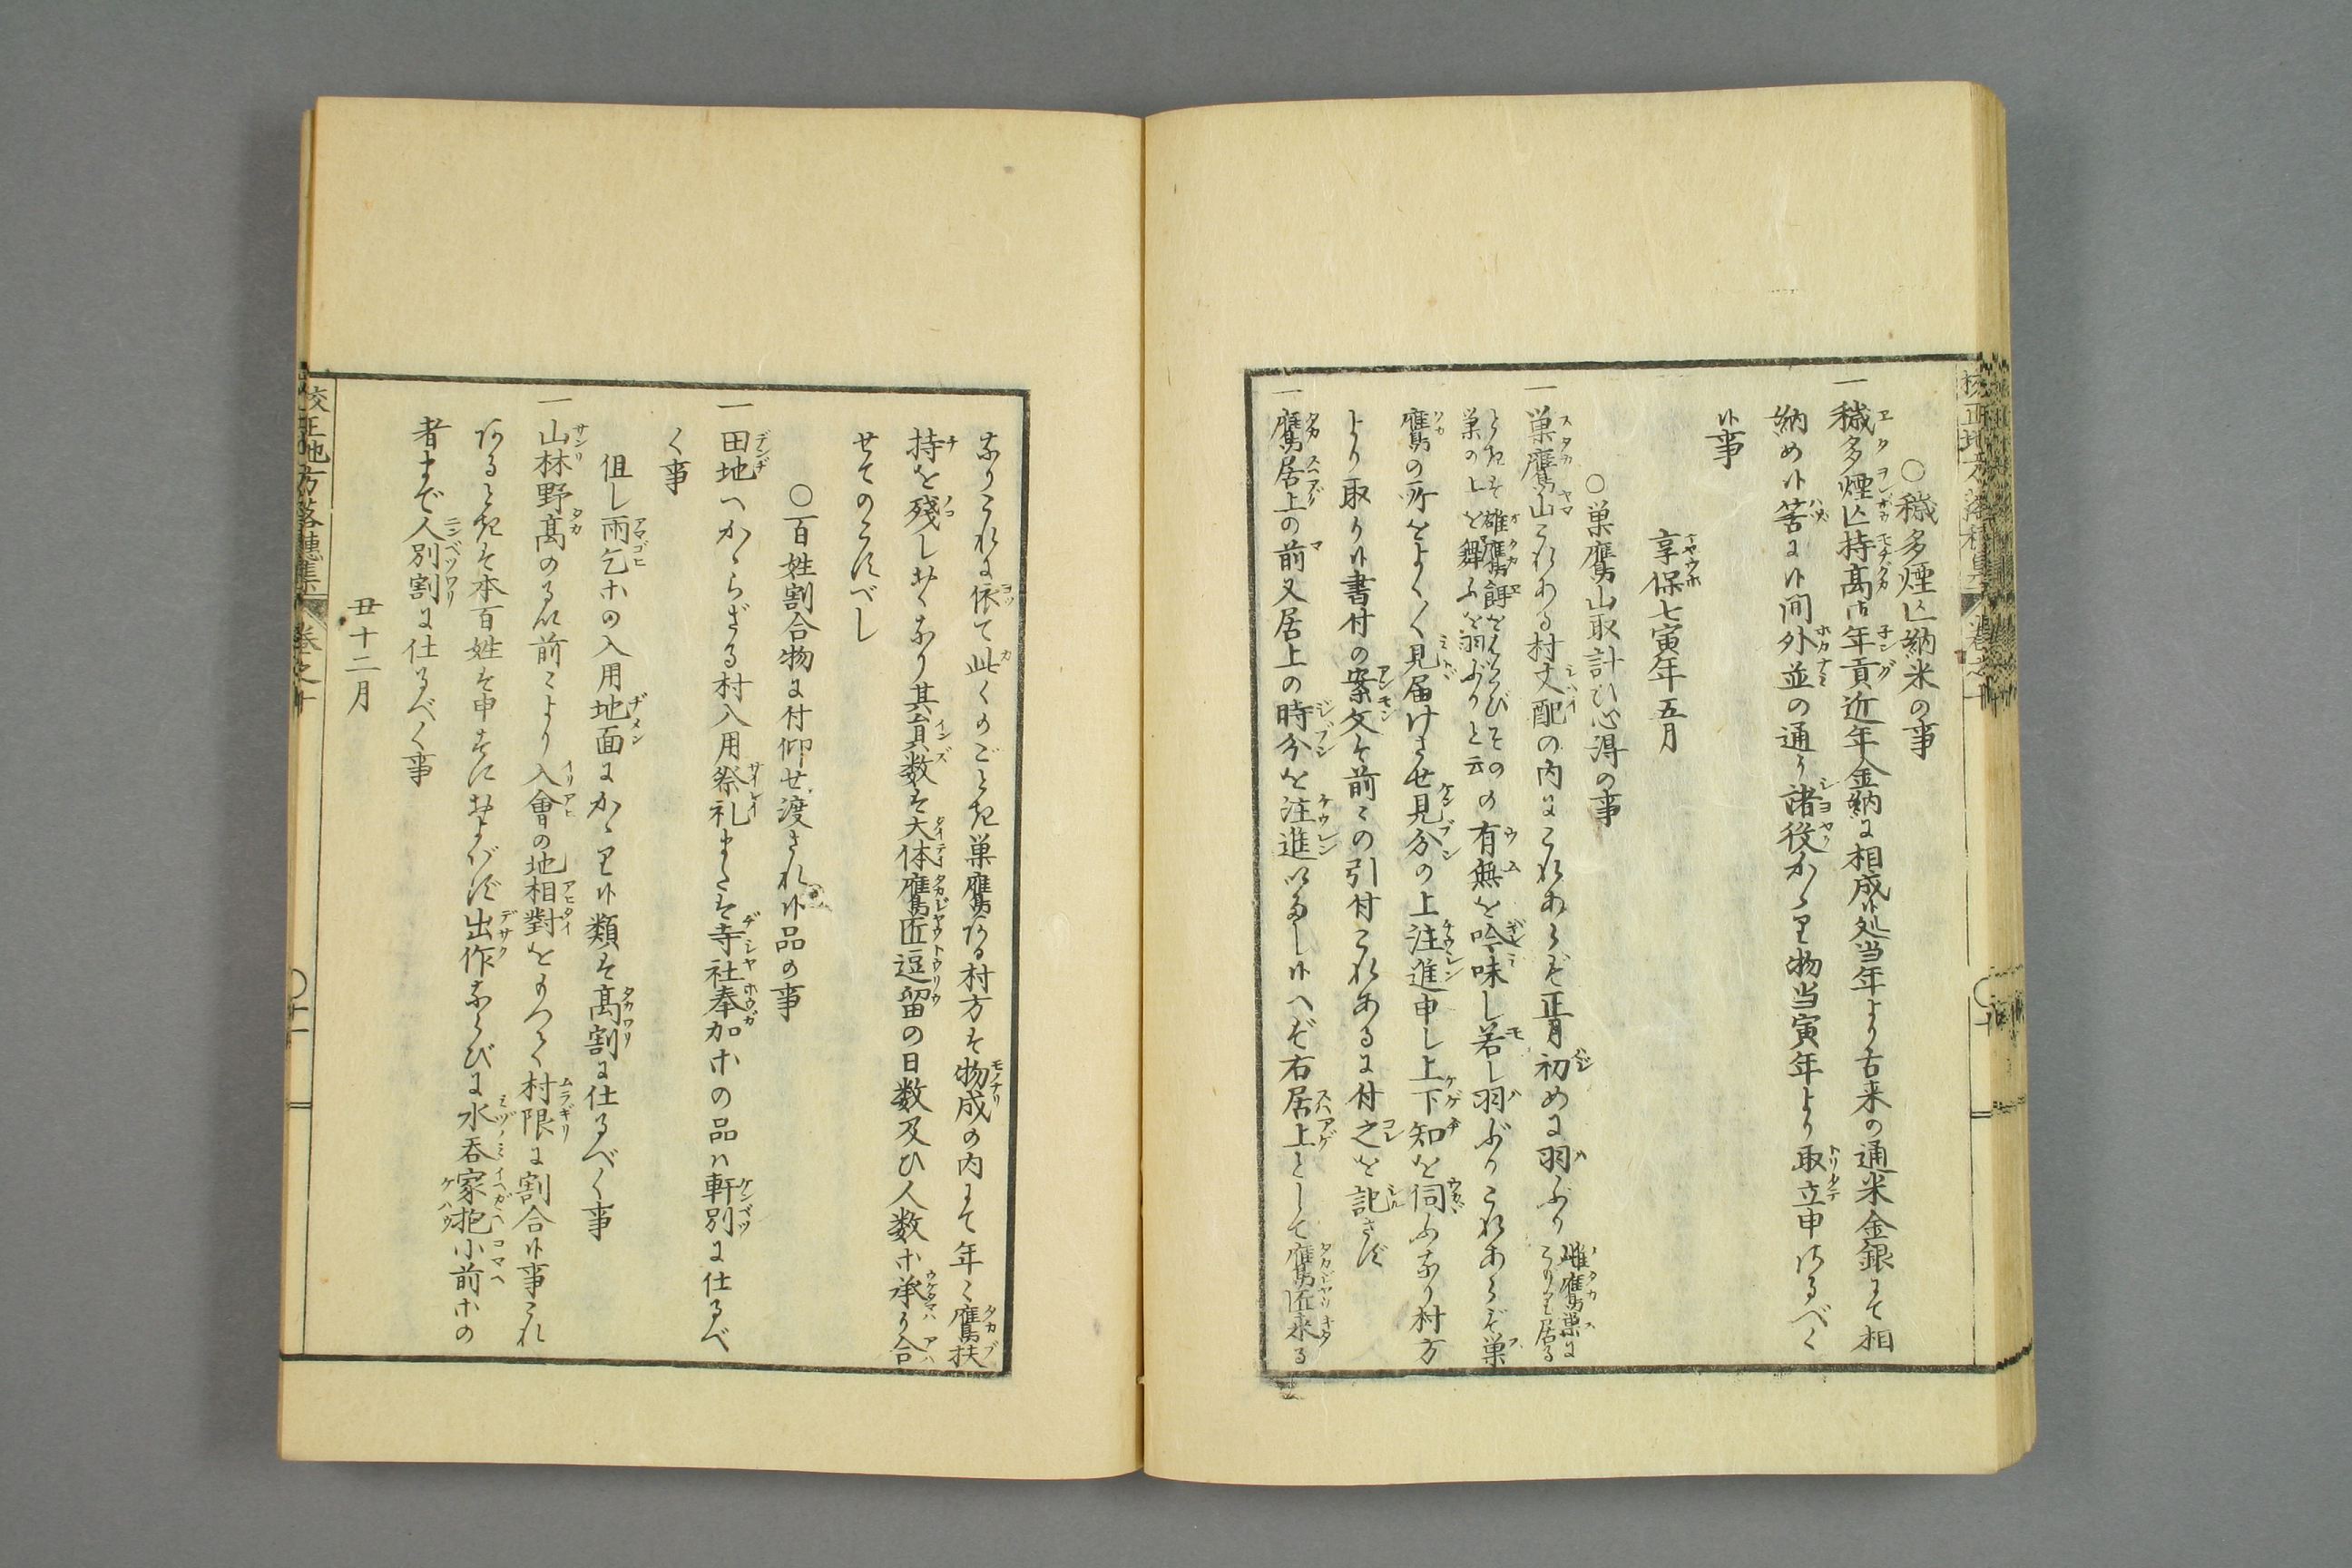 ○穢多煙亡納米の事
一穢多煙亡持高古年貢近年金納に相成候処当年より古来の通米金銀にて相
納め候筈に候間外並の通り諸役かゝり物当寅年より取立申さるべく
候事
享保七寅年五月
○巣鷹山取計ひ心得の事
一巣鷹山これある村支配の内にこれあらば正月初めに羽ぶり雌鷹巣に
こもり居る
ときは雄鷹餌をはこびその
巣の上を舞ふを羽ぶりと云の有無を吟味し若し羽ぶりこれあらば巣
鷹の所をよく〳〵見届けさせ見分の上注進申し上下知を伺ふなり村方
より取り候書付の案文は前々の引付これあるに付之を記さず
一鷹居上の前又居上の時分を注進いたし候へば右居上として鷹匠来る
なりこれに依て此くのごとき巣鷹ある村方は物成の内にて年々鷹扶
持を残しおくなり其員数は大体鷹匠逗留の日数及ひ人数ホ承り合
せてのこすべし
○百姓割合物に付仰せ渡され候品の事
一田地へかゝらざる村入用祭礼または寺社奉加ホの品ハ軒別に仕るべ
く事
但し雨乞ホの入用地面にかゝり候類は高割に仕るべく事
一山林野高のるい前々より入會の地相對をもつて村限に割合候事これ
あるときは本百姓は申すにおよばず出作ならびに水呑家抱小前ホの
者まで人別割に仕るべく事
丑十二月
校正地方落穂集 巻之十
○十一